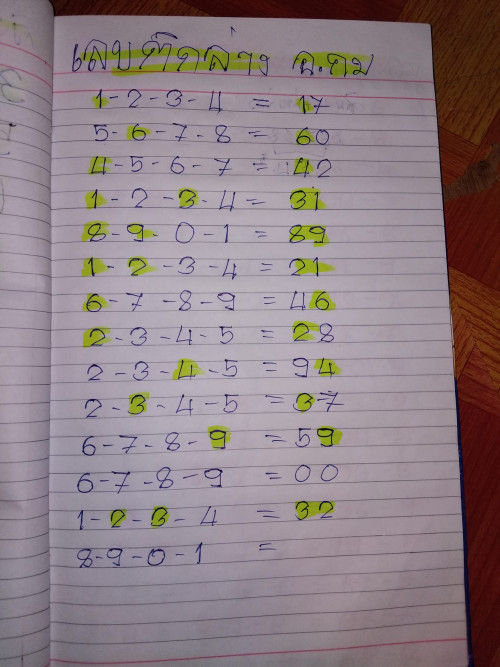 เลขติดล่าง อ.ถม
1-2-3-4 = 17
5-6-7-8 = 60
4-5-6-7 = 42
1-2-3-4 = 31
8-9-0-1 = 89
1-2-3-4 = 21
6-7-8-9 = 46
2-3-4-5 = 28
2-3-4-5 = 94
2-3-4-5 = 37
6-7-8-9 = 59
6-7-8-9 = 00
1-2-3-4 = 32
8-9-0-1 =